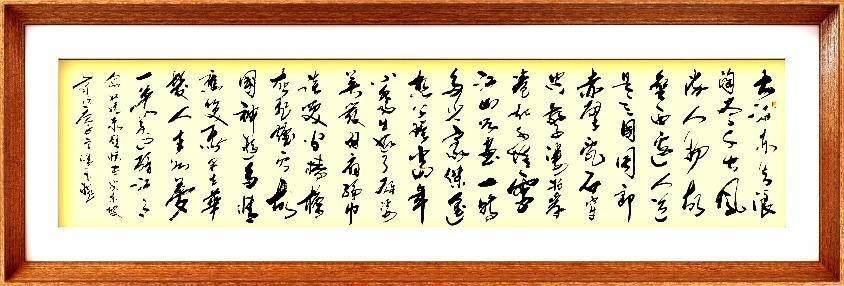 大江东去浪
淘尽千古风
流人物故
垒西边人道
是三国周郎
赤壁乱石穿
空惊涛拍岸
卷起千堆雪
江山如画一时
多少豪杰遥
想公瑾当年
小乔初嫁了雄姿
英发羽扇纶巾
谈笑间樯橹
灰飞烟灭故
国神游多情
应笑我早生华
发人生如梦
一尊还酹江月
念奴娇赤壁怀古苏东坡